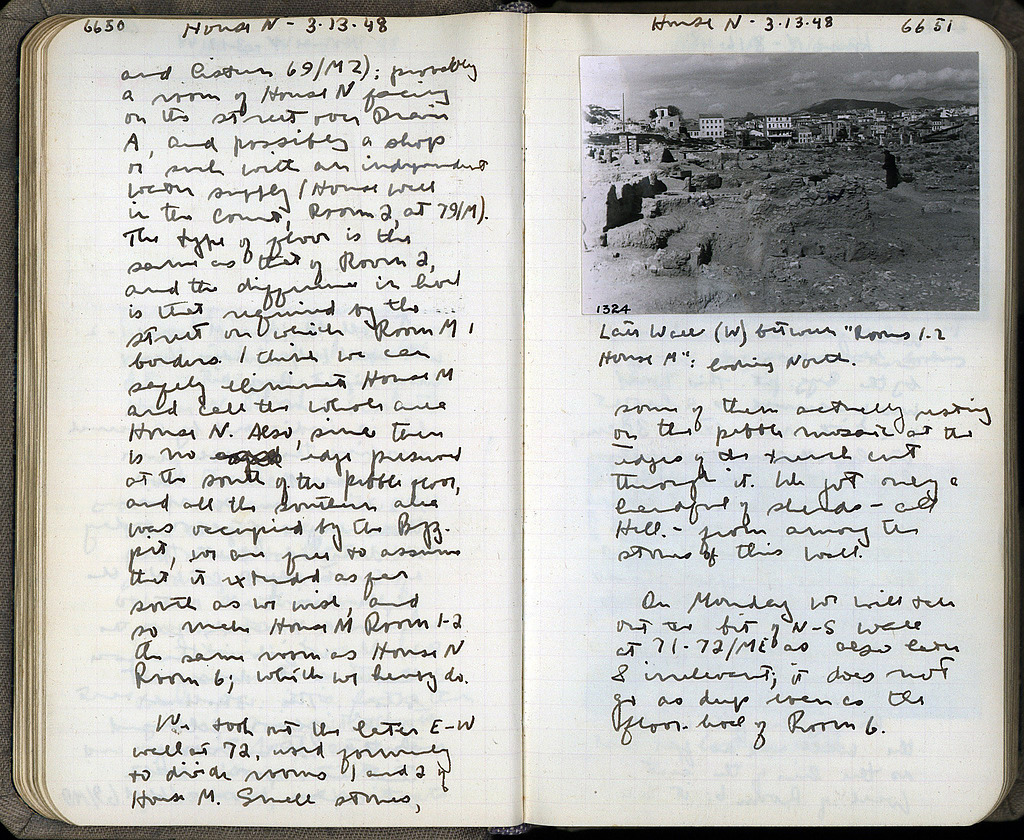 6650
House N - 3.13.48
and Cistern 69/M2); probably
a room of House N facing
on the street over Drain
A, and possibly a shop
or such with an independent
water supply (House well
in the Court, Room 2, at 79/M).
The type of floor is the
same as that of Room 2,
and the difference in level
is that required by the
street on which Room M 1
borders. I think we can
safely eliminate House M
and call the whole area
House N. Also, since there
is no edge preserved
at the south of the pebble floor,
and all the southern area
was occupied by the Byz.
pit, we are free to assume
that it extended as far
south as we wish, and
so make House M Room 1-2
the same room as House N
Room 6; which we hereby do.
We took out the later E-W
wall at 72, used formerly
to divide rooms 1 and 2 of
House M. Small stones,
House N - 3.13.48
6651
1324
Late Wall (W) between "Rooms 1-2
House M": looking North.
some of them actually resting
on the pebble mosaic at the
edges of the trench cut
through it. We got only a
handful of sherds - all
Hell. - from among the
stones of this wall.
On Monday we will take
out the bit of N-S wall
at 71-72/ME as also later
& irrelevant; it does not
go as deep even as the
floor-level of Room 6.